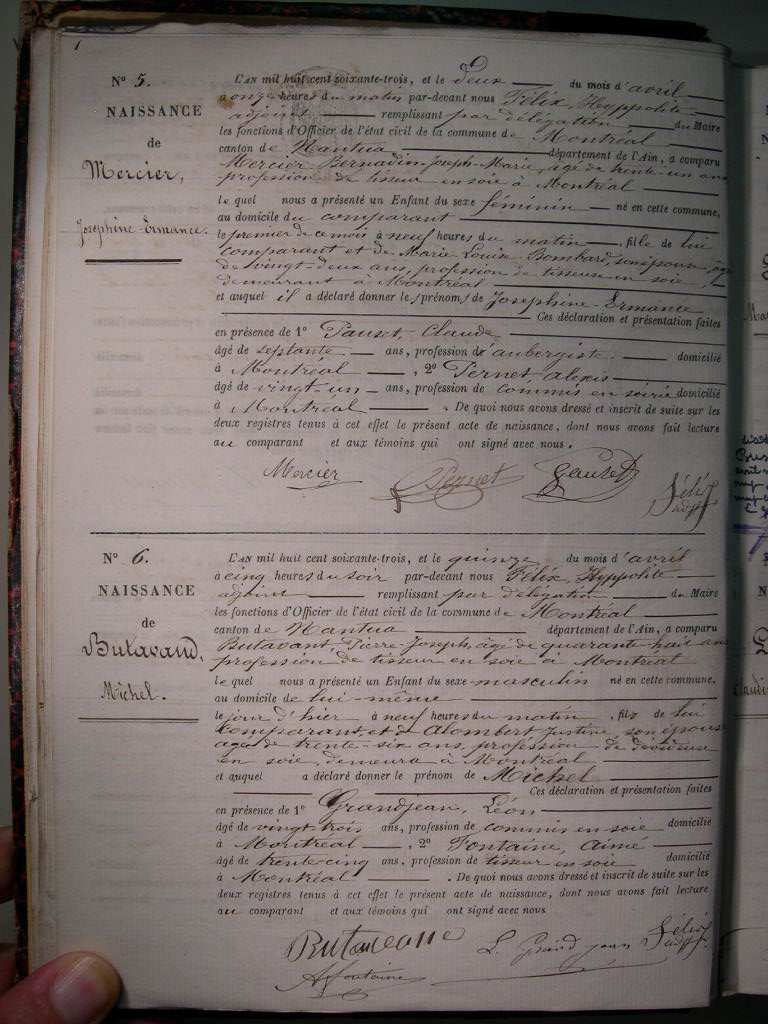 1
N° 5.
NAISSANCE
de
Mercier,
Josephine-Ermance.
L'AN mil huit cent soixante-trois, et le deux du mois d'avril
à onze heures du matin par-devant nous Félix, Hyppolite
adjoint remplissant par délégation du Maire
les fonctions d'Officier de l'état civil de la commune de Montréal
canton de Nantua département de l'Ain, a comparu
Mercier Bernadin Joseph-Marie, âgé de trente-un ans
profession de tisseur en soie à Montréal
le quel nous a présenté un Enfant du sexe féminin né en cette commune,
au domicile du comparant
le premier de ce mois à neuf heures du matin, fille de lui
comparant et de Marie Louise Bombard, son épouse âgée
de vingt-deux ans, profession de tisseuse en soie,
demeurant à Montréal
et auquel il a déclaré donner le (prénom) de Josephine-Ermance
Ces déclaration et présentation faites
en présence de 1° Pauset, Claude
âgé de septante ans, profession d'aubergiste domicilié
à Montréal, 2° Pernet, alexis
âgé de vingt-un ans, profession de commis en soirie domicilié
à Montréal. De quoi nous avons dressé et inscrit de suite sur les
deux registres tenus à cet effet le présent acte de naissance, dont nous avons fait lecture
au comparant et aux témoins qui ont signé avec nous.
Mercier Pernet Félix
adjt
N° 6.
NAISSANCE
de
Butavand,
Michel.
L'AN mil huit cent soixante-trois, et le quinze du mois d'avril
à cinq heures du soir par-devant nous Félix, Hyppolite
adjoint remplissant par délégation du Maire
les fonctions d'Officier de l'état civil de la commune de Montréal
canton de Nantua département de l'Ain, a comparu
Butavant, Pierre-Joseph, âgé de quarante huit ans
profession de tisseur en soie à Montréal
le quel nous a présenté un Enfant du sexe masculin né en cette commune,
au domicile de lui-même
le jour d'hier à neuf heures du matin, fils de lui
comparant, et de Alombert Justine, son épouse
âgée de trente-six ans, profession de dévideuse
en soie, demeura à Montréal
et auquel a déclaré donner le prénom de Michel
Ces déclaration et présentation faites
en présence de 1° Grandjean, Léon
âgé de vingt-trois ans, profession de commis en soie domicilié
à Montréal, 2° Fontaine, Aimé
âgé de trente-cinq ans, profession de tisseur en soie domicilié
à Montréal. De quoi nous avons dressé et inscrit de suite sur les
deux registres tenus à cet effet le présent acte de naissance, dont nous avons fait lecture
au comparant et aux témoins qui ont signé avec nous
L. Grand jean Félix
adjt.
A fontaine